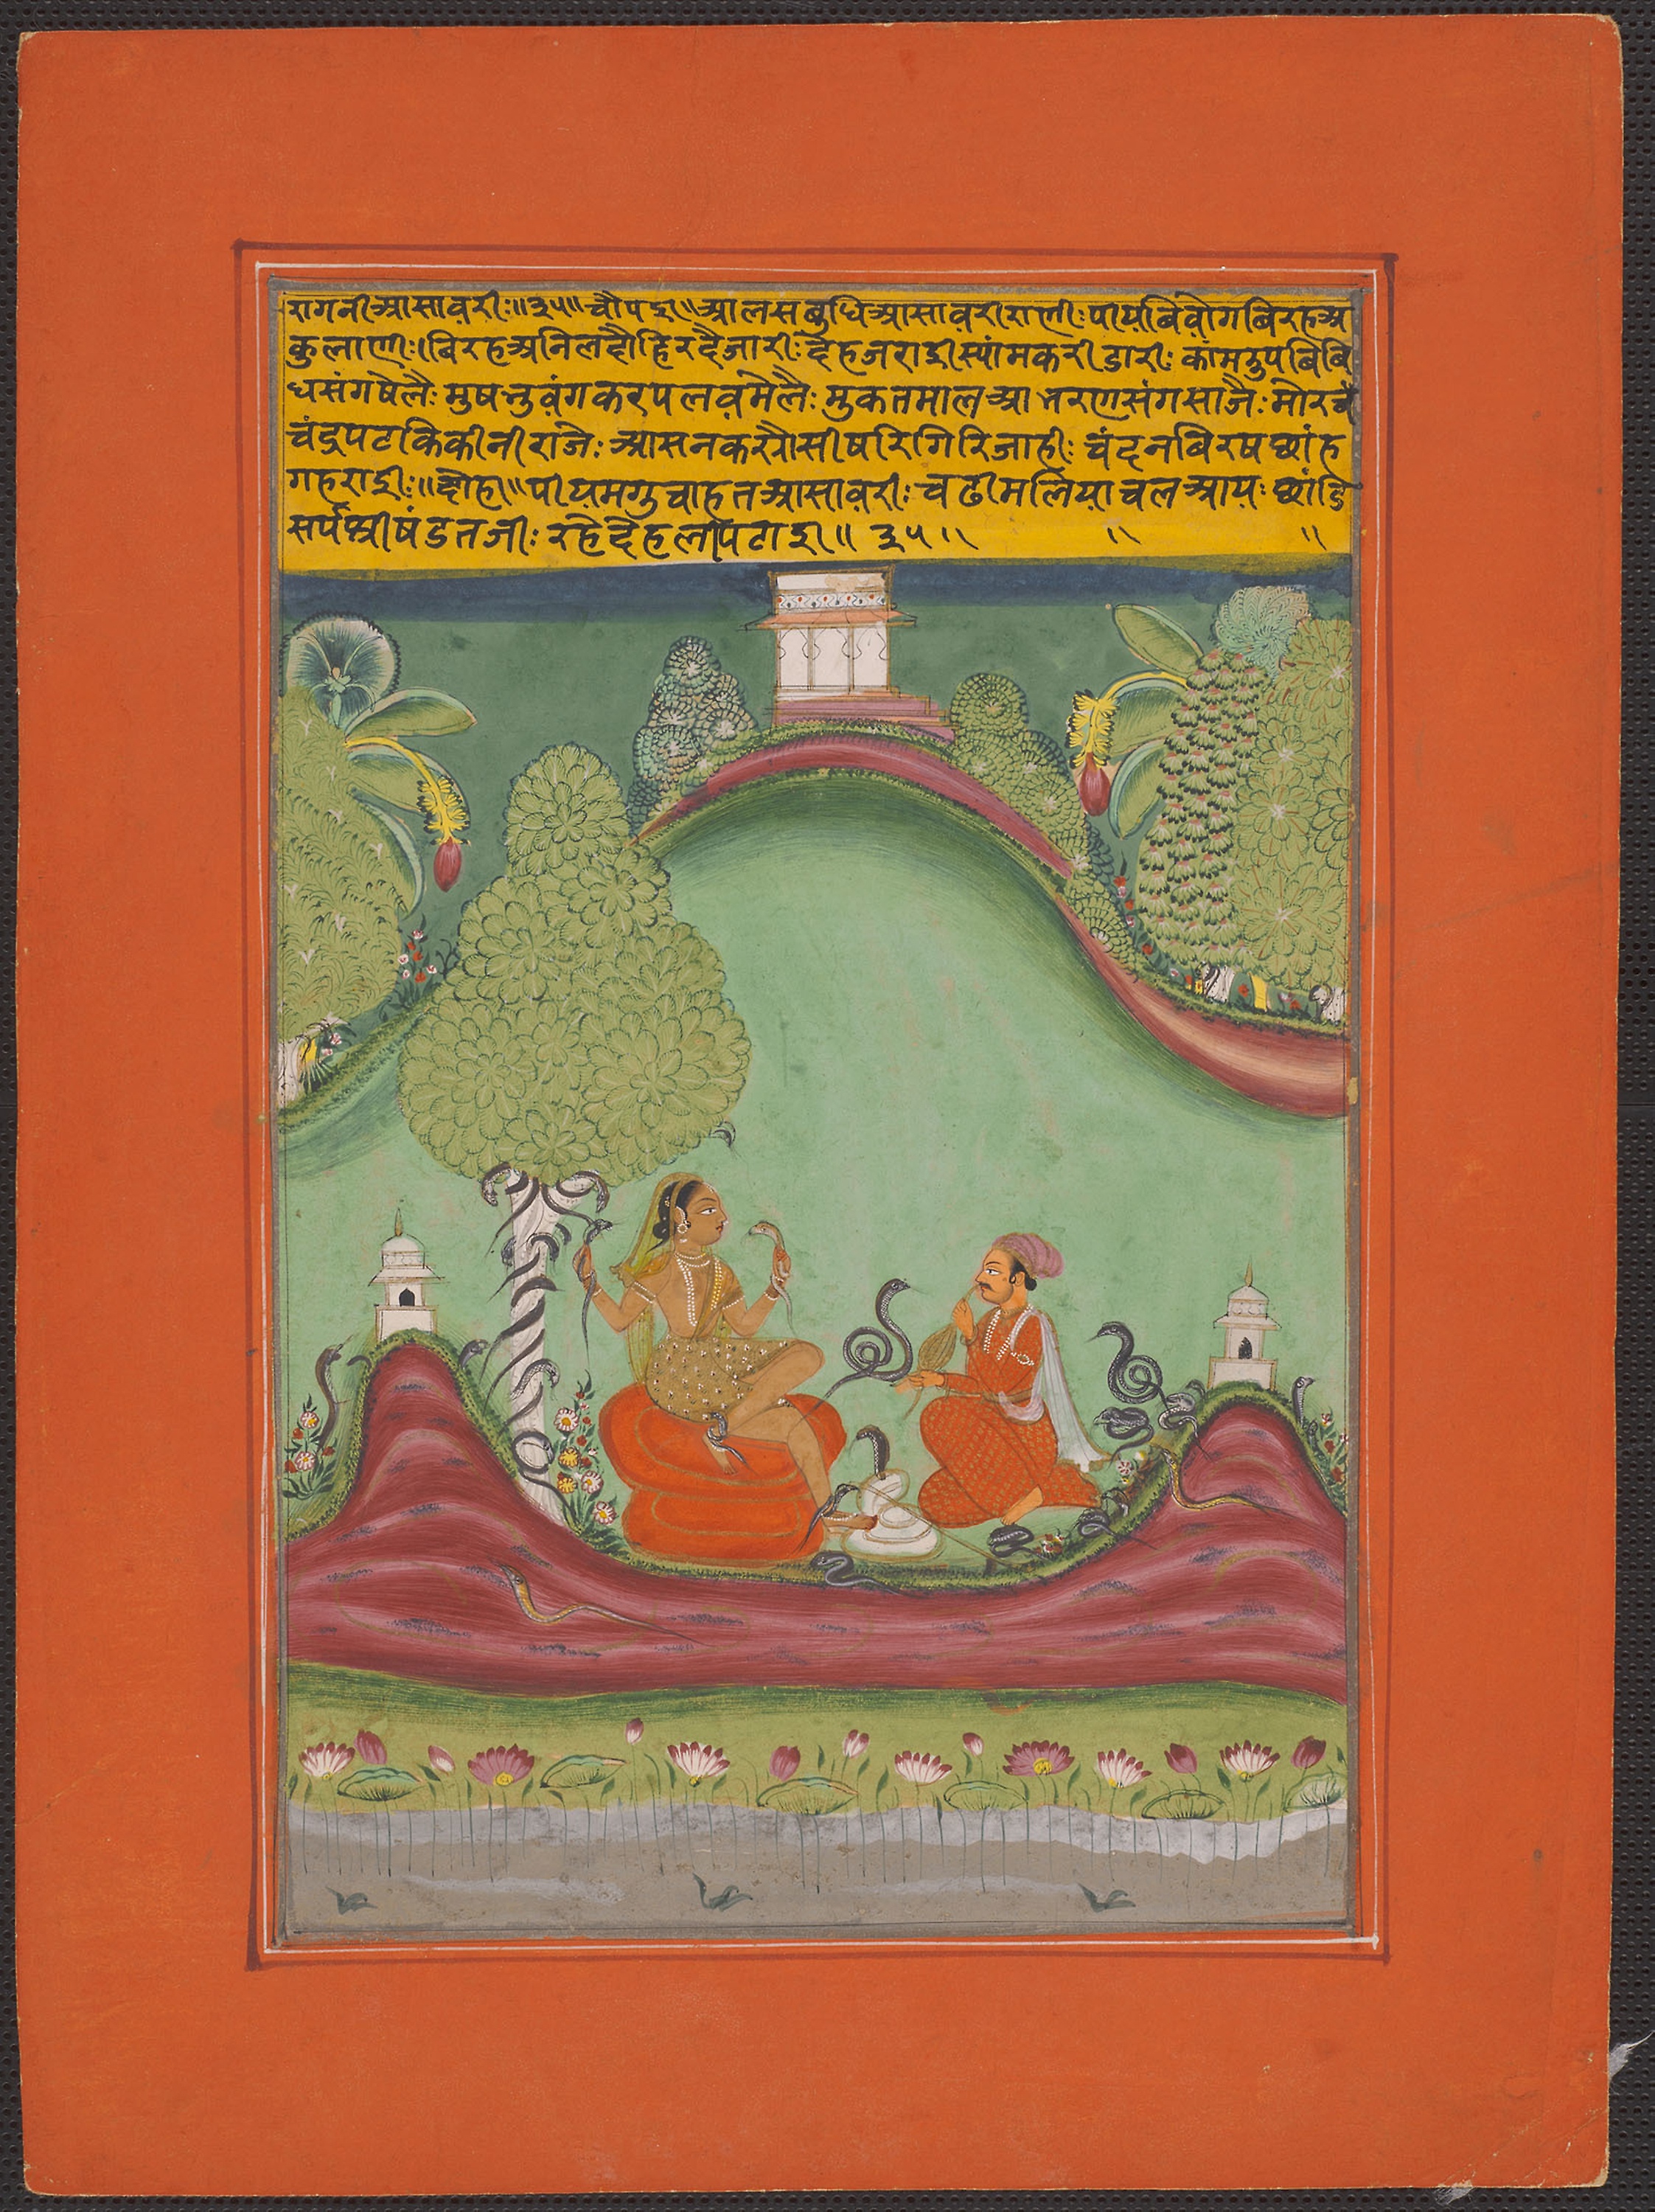 रागनीआसावरीः॥३५॥चौपई॥आलसबुधिआसावरीराणीः पीयबियोगबिरहअ
कुलाणीः।बिरहअनिलदौहिरदैजारीः देहजराईस्यांमकरीडारीः कांमतुपबिबि
धसंगषेलैः मुषभुवंगकरपलवमेलैः मुकतमालआभरणसंगसाजैः मोरचं
चंद्रपटकिकीनीराजैः आसनकर सीषरिगिरिजाहीः चंदनबिरषछांह
गहराईः॥दोहा॥पीयमगुचाहतआसावरीः चढीमलियाचलआयः छांडि
सर्पश्रीषंडतजीः रहेदेहलीपटाई॥३५॥ ॥ ॥